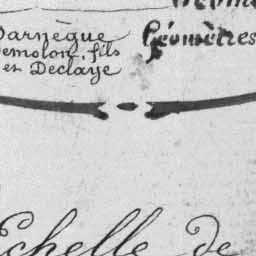 Darnègue
Demolon, fils
et Declaye
Géomètres
Echelle de